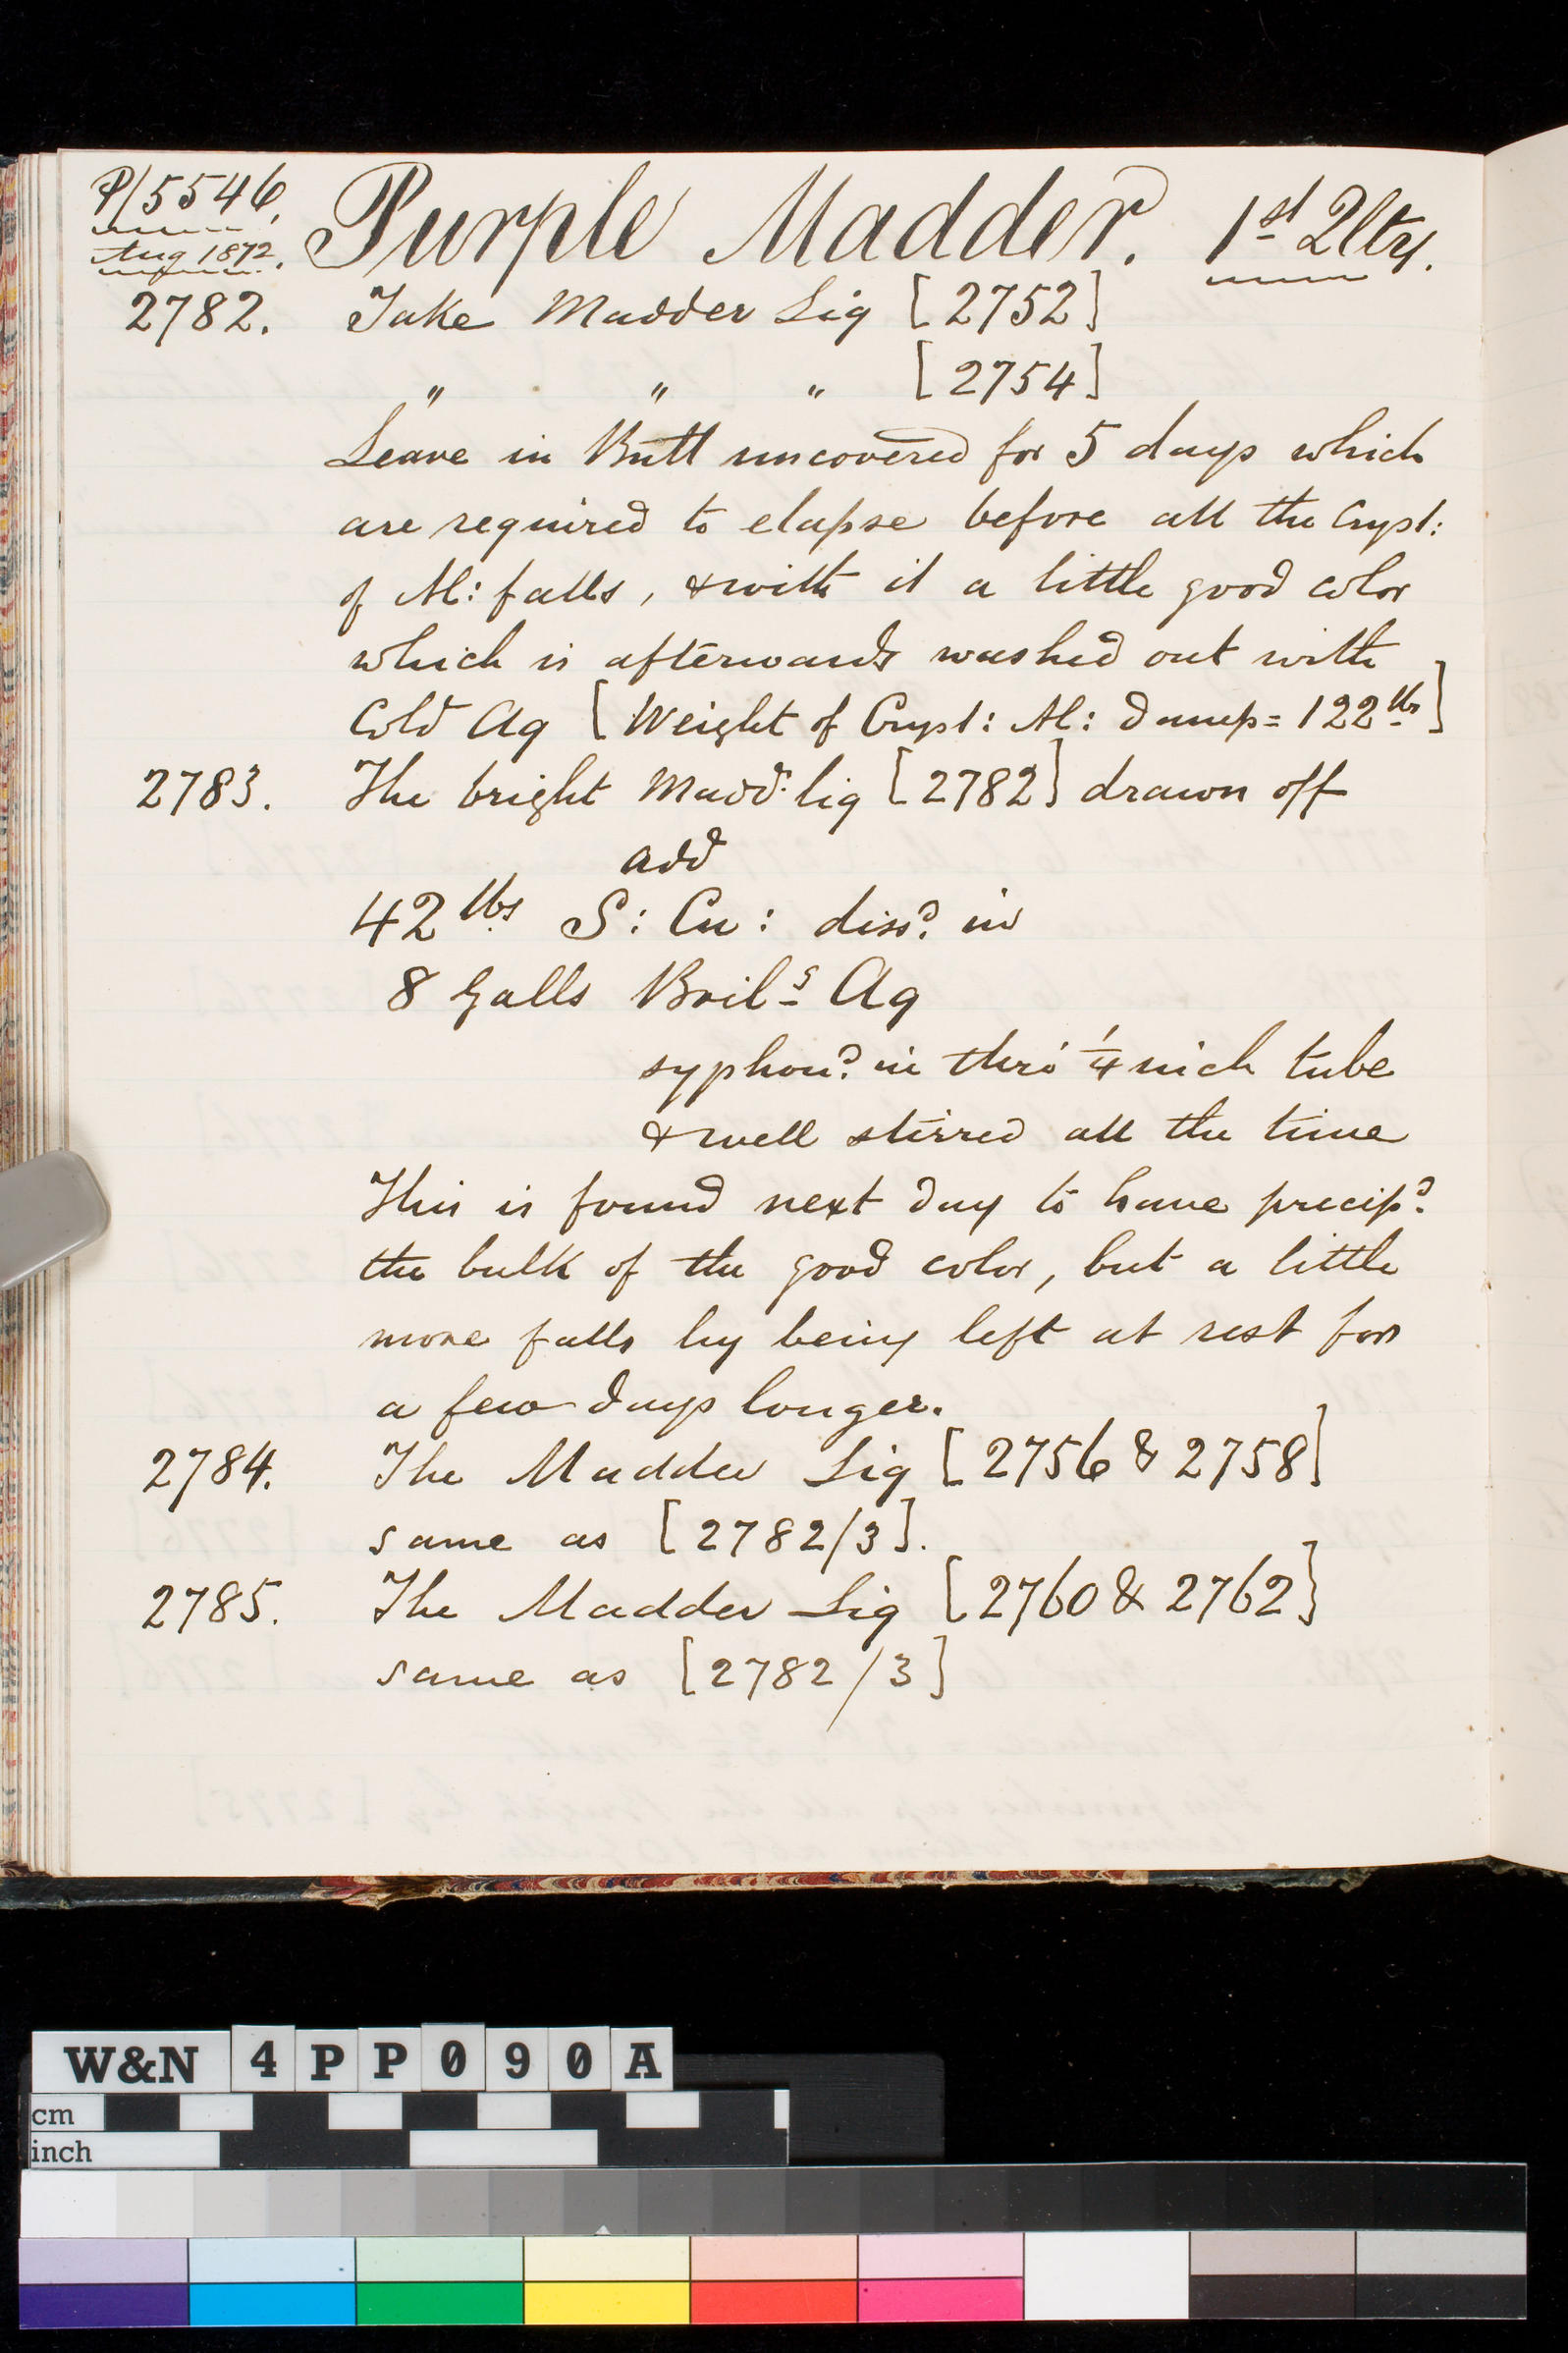 P/5546.
Aug 1872.
Purple Madder. 1st Qlty.
2782. Take Madder Liq [2752]
" " " [2754]
Leave in Butt uncovered for 5 days which
are required to elapse before all the Cryst:
of Al: falls, & with it a little good color
which is afterwards washed out with
Cold Aq [Weight of Cryst: Al: damp = 122 lbs]
2783. The bright Madd: liq [2782] drawn off
add
42 lbs S: Cu: dissd. in
8 Galls Boilg Aq
syphond. in thro' 1/4 inch tube
& well stirred all the time
This is found next day to have precipd.
the bulk of the good color, but a little
more falls by being left at rest for
a few days longer.
2784. The Madder Liq [2756 & 2758]
same as [2782/3].
2785. The Madder Liq [2760 & 2762]
same as [2782/3]
W&N 4PP090A
cm
inch